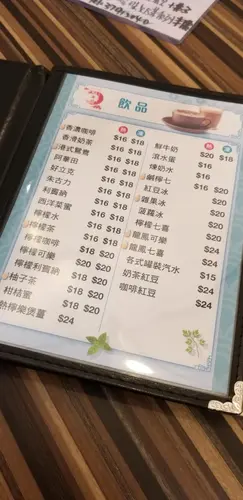 飲品
熱 凍
香濃咖啡 $16 $18
香港奶茶 $16 $18
港式鴛鴦 $16 $18
阿華田 $16 $18
好立克 $16 $18
朱古力 $16 $18
利賓納 $16 $18
西洋菜蜜 $16 $18
檸檬水 $16 $18
檸檬茶 $16 $18
檸檬咖啡 $18 $20
檸檬可樂 $18 $20
檸檬利賓納 $18 $20
柚子茶 $18 $20
柑桔蜜 $18 $20
熱檸樂煲薑 $24
鮮牛奶 $20 $18
滾水蛋 $16
燉奶水 $16
鹹檸七 $16 $20
紅豆冰 $20
雜果冰 $20
菠蘿冰 $20
檸檬七喜 $20
龍鳳可樂 $24
龍鳳七喜 $24
各式罐裝汽水 $15
奶茶紅豆 $24
咖啡紅豆 $24